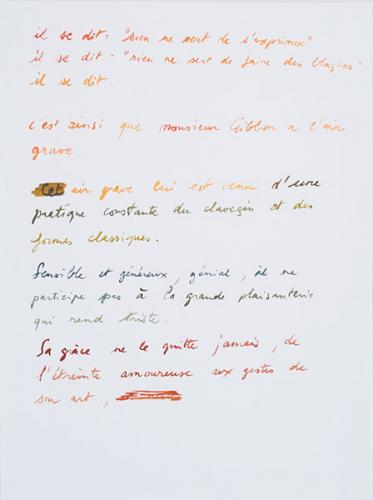 il se dit : "rien ne sert de s'exprimer"
il se dit : "rien ne sert de faire des blagues"
il se dit.
c'est ainsi que monsieur Gibbon a l'air
grave.
Cet air grave lui est venu d'une
pratique constante du clavecin et des
formes classiques.
Sensible et généreux, génial, il ne
participe pas à la grande plaisanterie
qui rend triste.
Sa grâce ne le quitte jamais, de
l'étreinte amoureuse aux gestes de
son art,